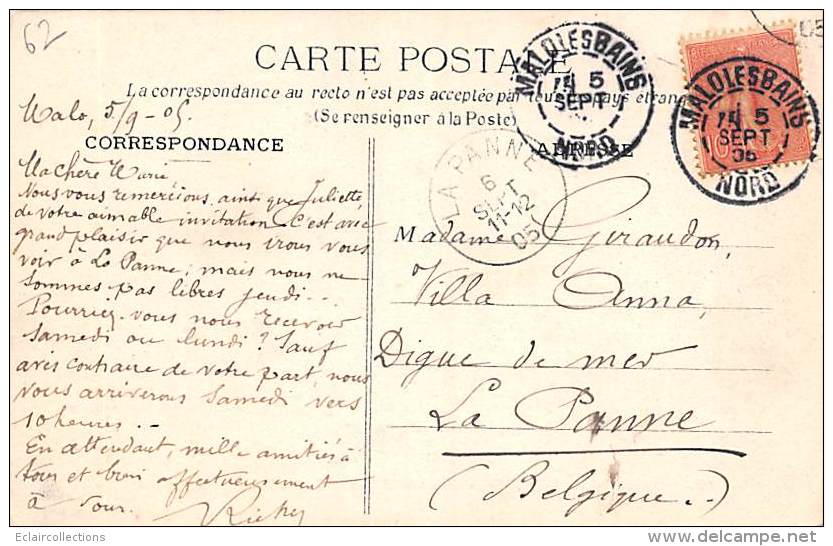 62
CARTE POSTALE
La correspondance au recto n'est pas acceptée par tous les pays étrangers
(Se renseigner à la Poste)
CORRESPONDANCE
ADRESSE
MALO LES BAINS
5
SEPT
NORD
MALO LES BAINS
5
SEPT
05
NORD
LA PANNE
6
SEPT
11-12
05
05
Malo, 5/9-05.
Ma chère Marie
Nous vous remercions ainsi que Juliette,
de votre aimable invitation. C'est avec
grand plaisir que nous irons vous
voir à La Panne; mais nous ne
sommes pas libres jeudi..
Pourriez-vous nous recevoir
Samedi ou lundi? Sauf
avis contraire de votre part, nous
vous arriverons Samedi vers
10 heures..
En attendant, mille amitiés à
tous et bien affectueusement
à vous.
Madame Giraudon,
Villa Anna,
Digue de mer
La Panne
(Belgique.)
Eclaircollections
delcampe.net